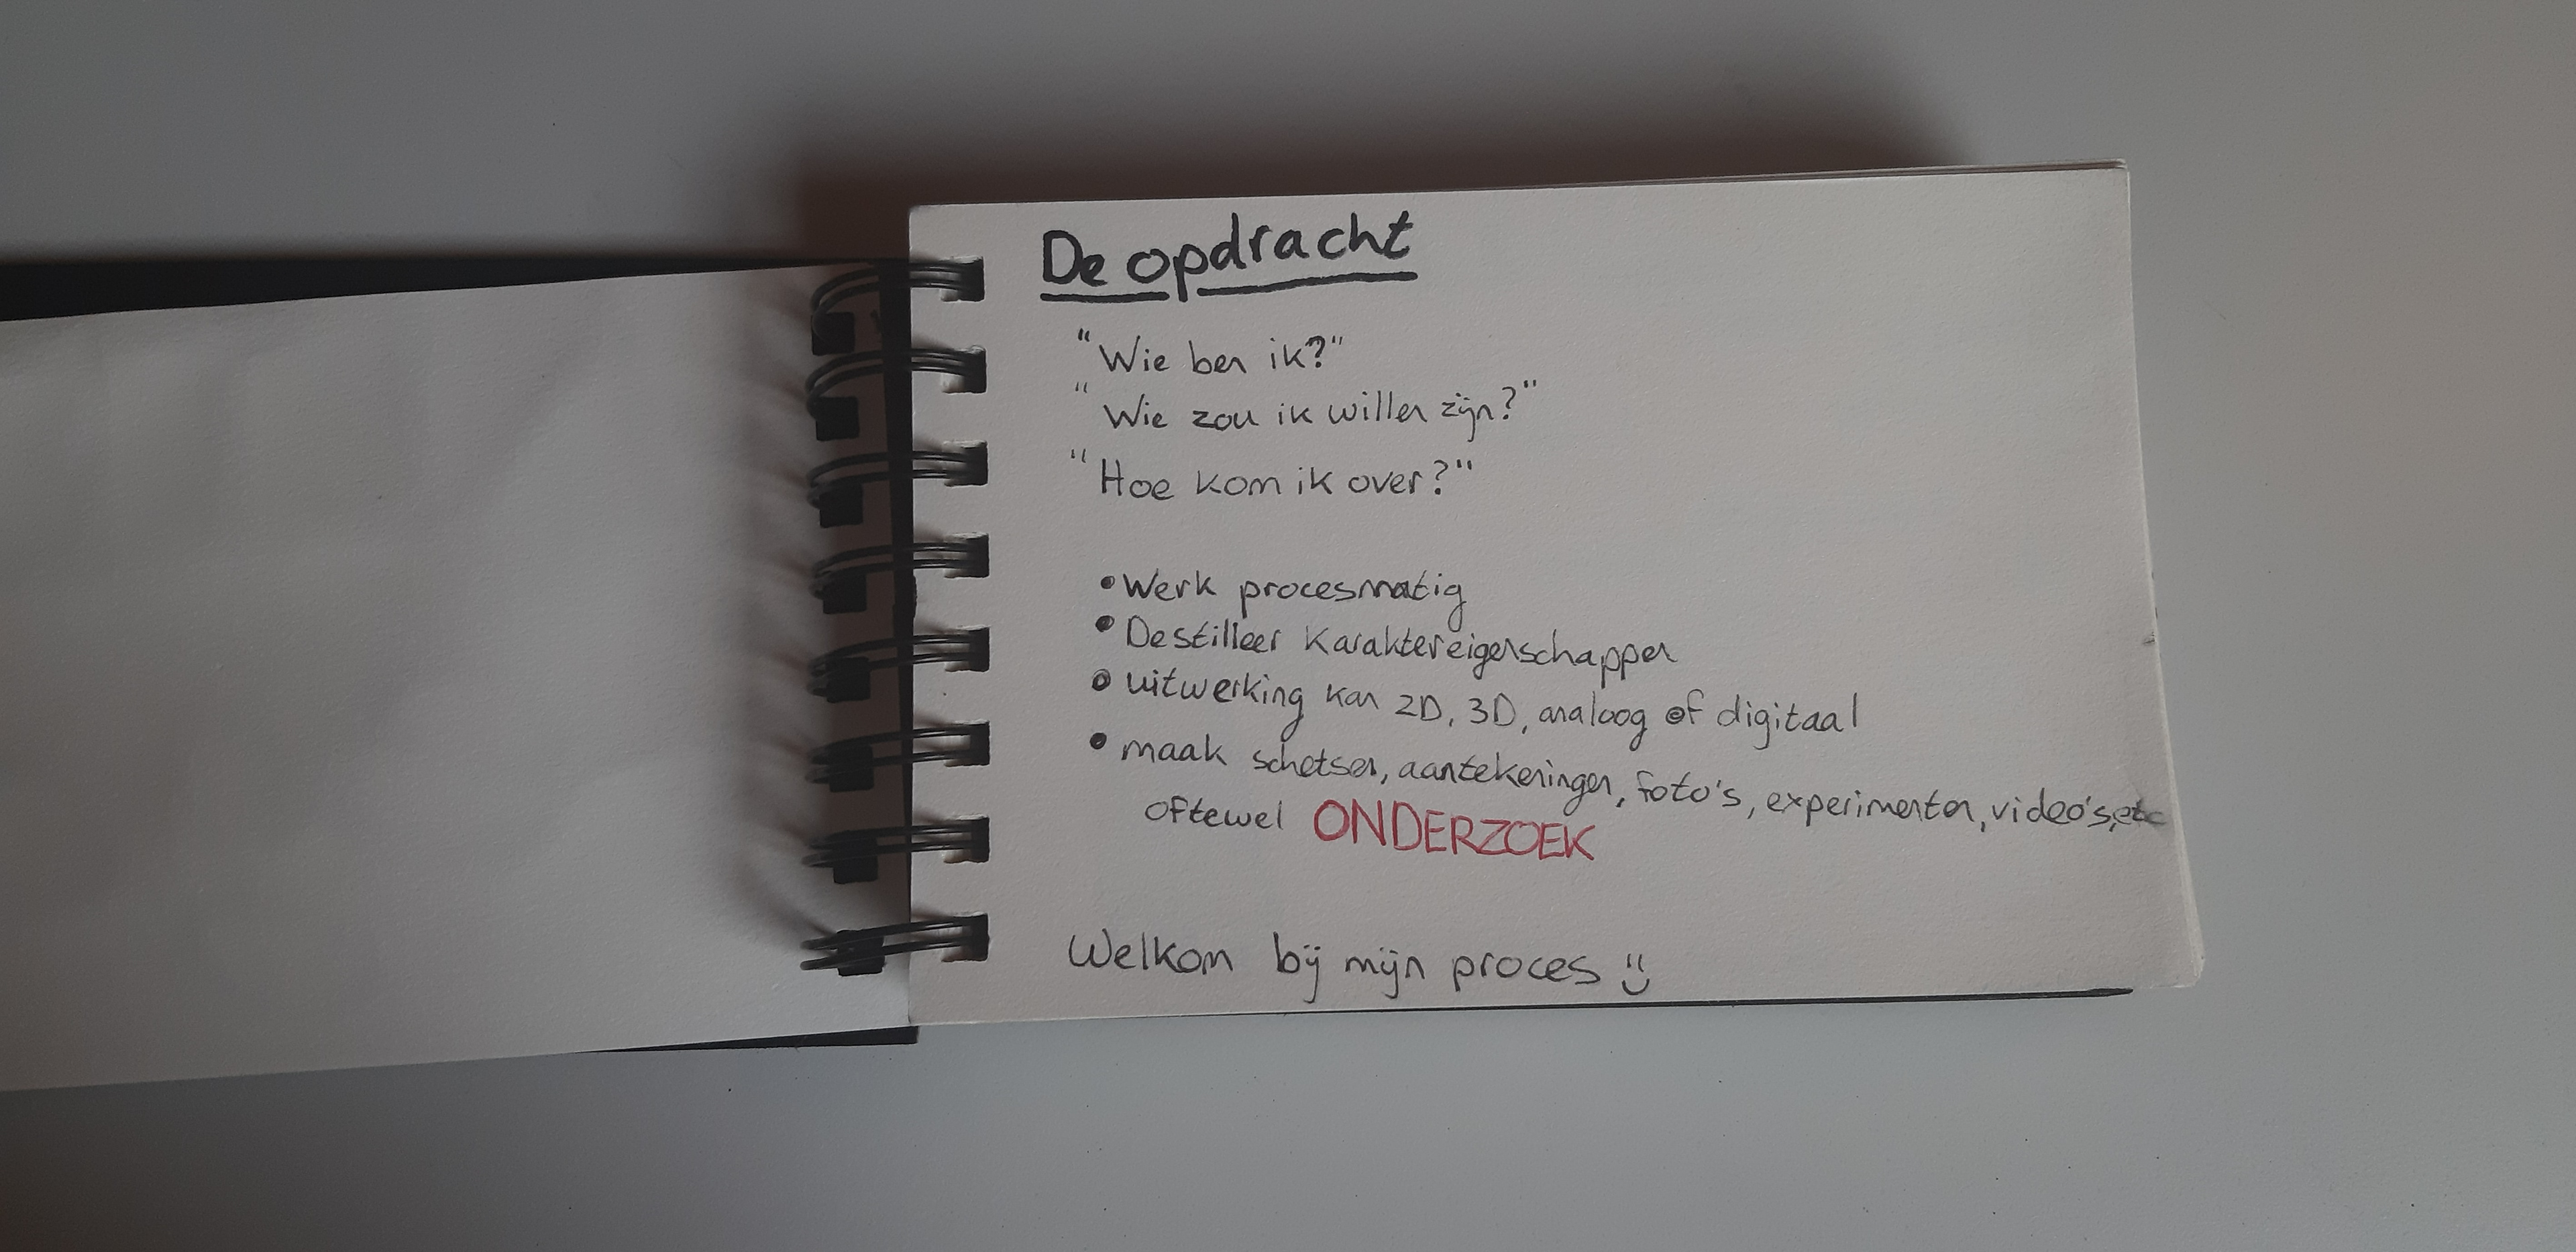 De opdracht
"Wie ben ik?"
"Wie zou ik willen zijn?"
"Hoe kom ik over?"
• Werk procesmatig
• Destilleer karaktereigenschappen
• uitwerking kan 2D, 3D, analoog of digitaal
• maak schetsen, aantekeningen, foto's, experimenten, video's, etc
oftewel ONDERZOEK
Welkom bij mijn proces ü